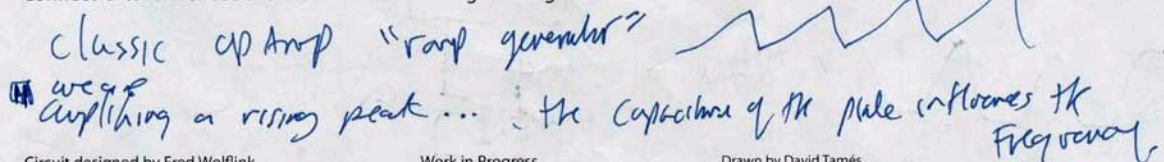 classic OpAmp "ramp generator"
we are
amplifying a rising peak... the capacitance of the plate influences the
Frequency.
Circuit designed by Fred Wolflink Work in Progress Drawn by David Tamés